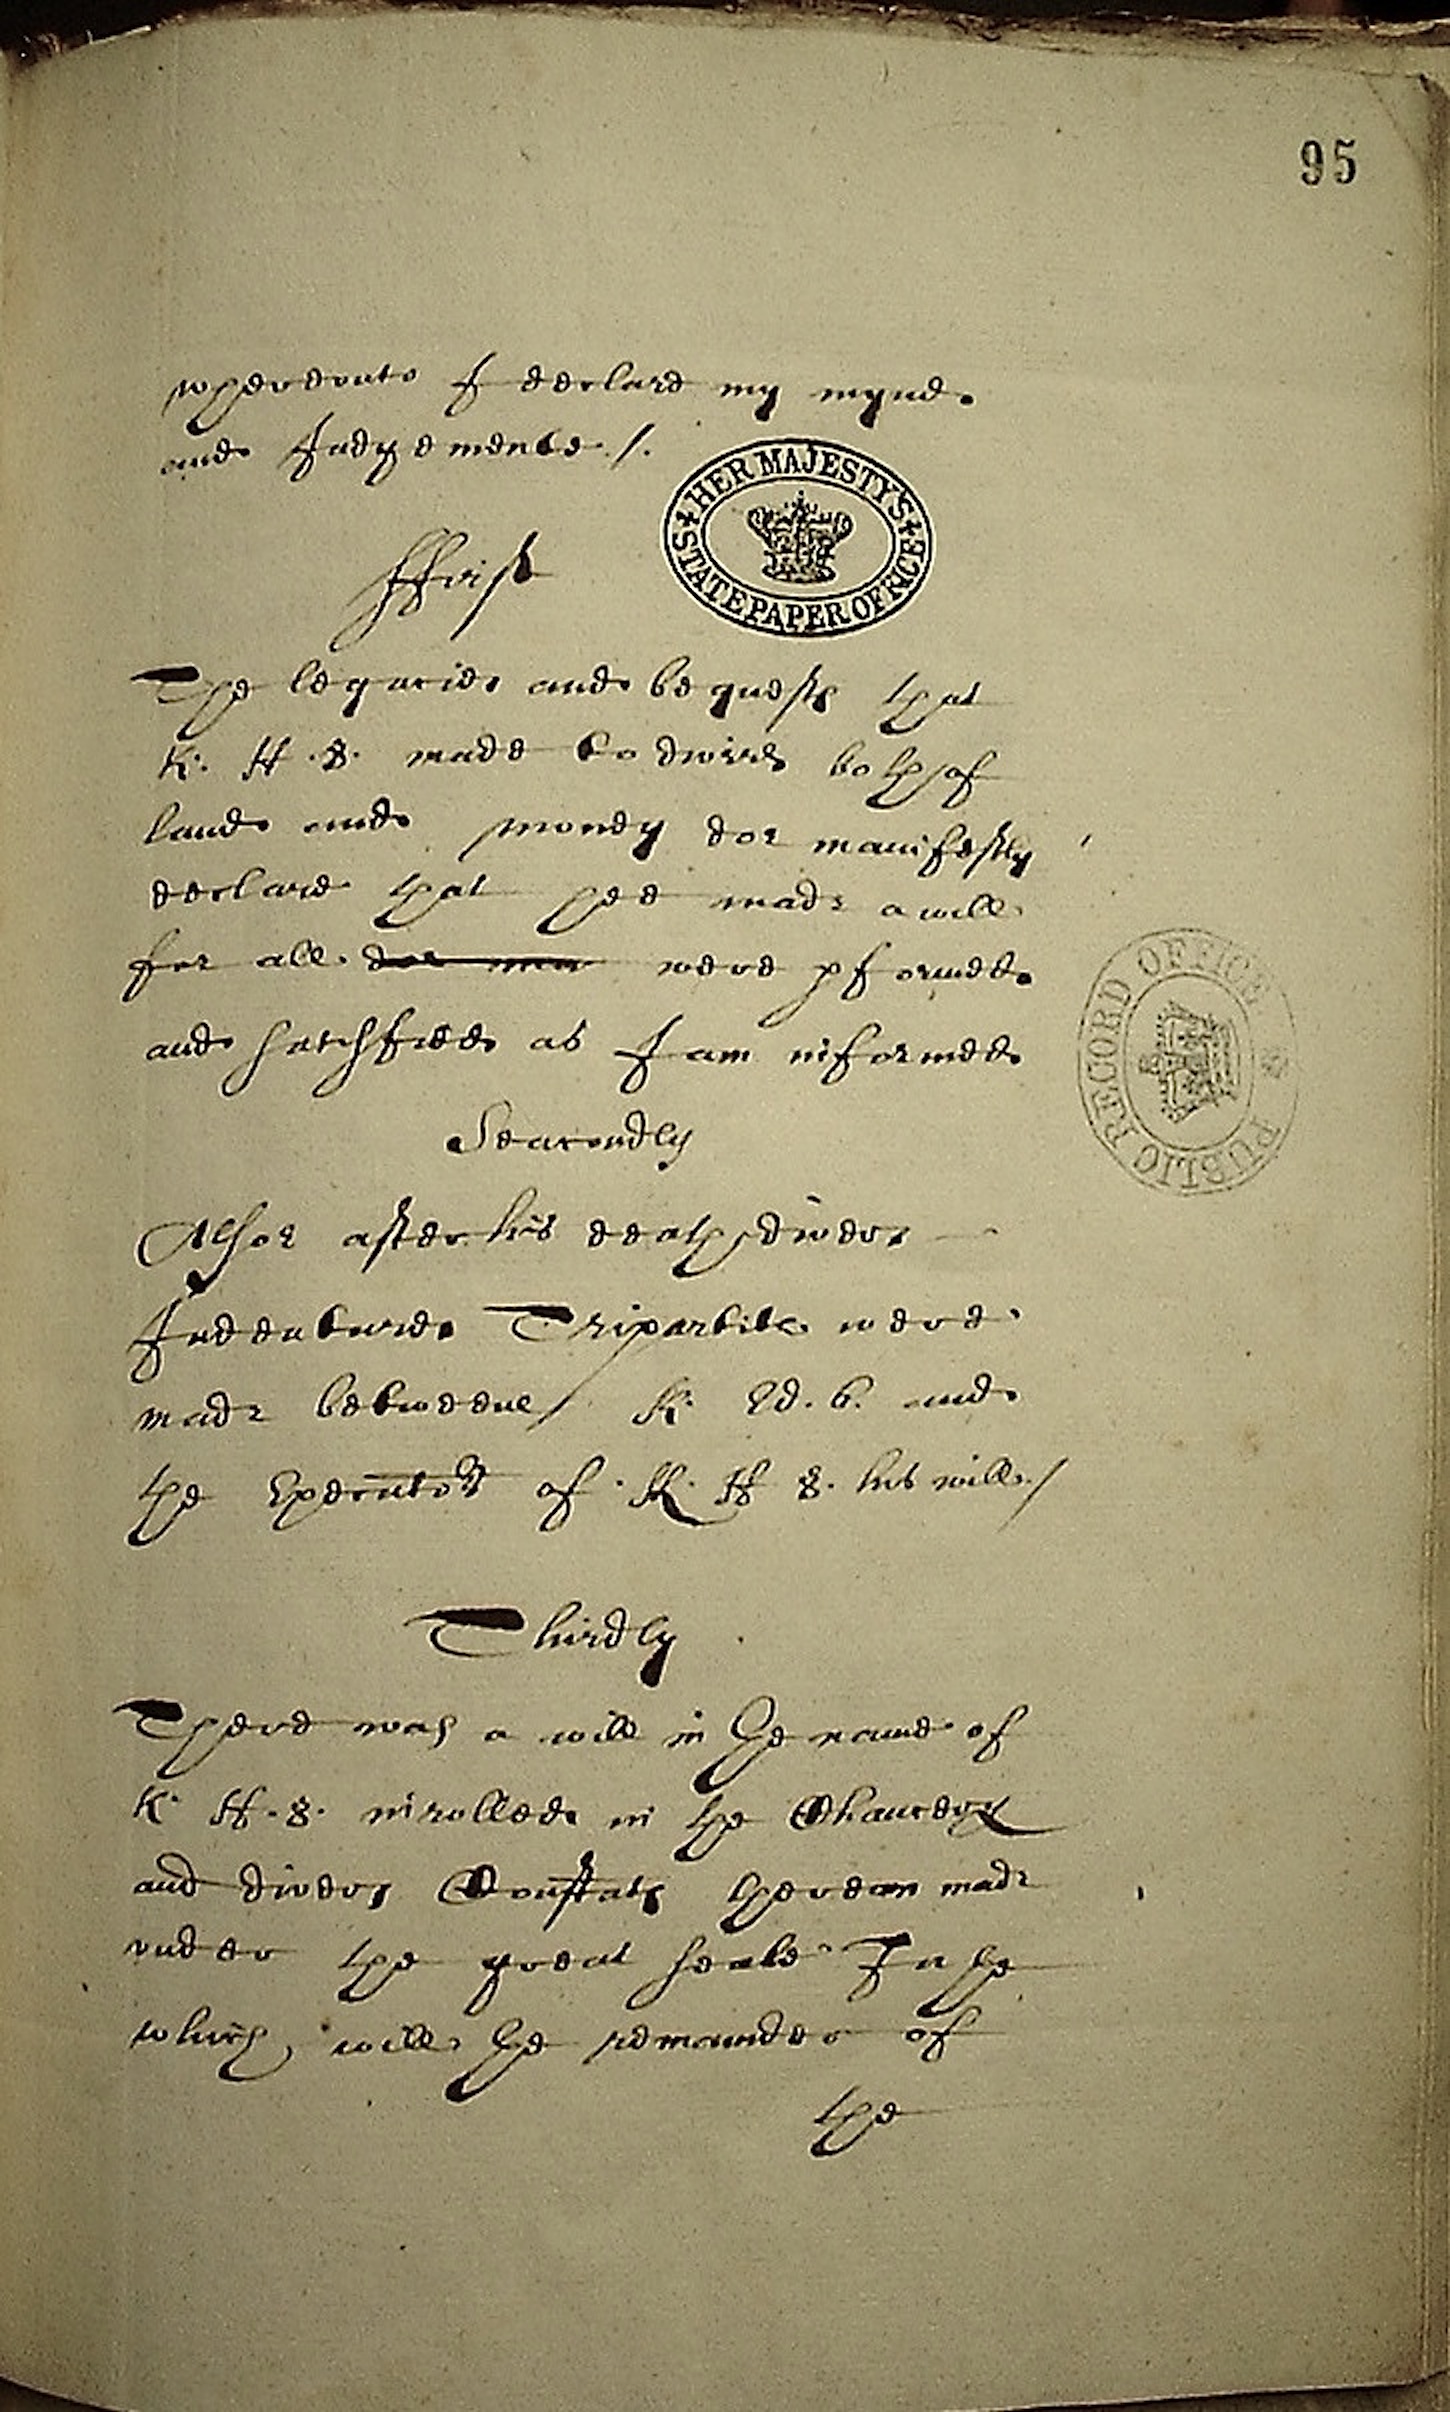 95
whereunto I declare my mynde
and Judgemente /.
HER MAJESTY'S STATE PAPER OFFICE
ffirst
The legacies and bequests that
K. H. 8. made to divers both of
lande and money doe manifestly
declare that hee made a will
for all doe were pformed
and satisfied as I am informed
PUBLIC RECORD OFFICE
Secondly
Alsoe after his death divers
Indentures Tripartite were
made betweene K. Ed. 6. and
the Executors of K. H 8. his will /
Thirdly
There was a will in the name of
K. H. 8. inrolled in the Chancery
and divers Constats thereon made
under the great seale In the
which will the remainder of
the